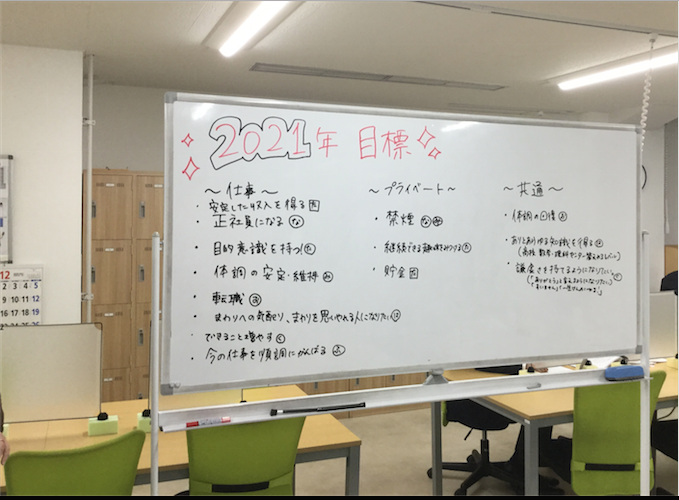 2021年 目標
〜仕事〜
・安定した収入を得る
・正社員になる な
・目的意識を持つ!
・体調の安定・維持 み
・転職
・まわりへの気配り、まわりを思いやれる人になりたい は
・できること増やす
・今の仕事を順調にがんばる
〜プライベート〜
・禁煙
・継続できる趣味をみつける
・貯金
〜共通〜
・体調の回復
・ありとあらゆる知識を得る
(高校 数学・理科
・謙虚さを持てるようになりたい
12
5
12
19
26